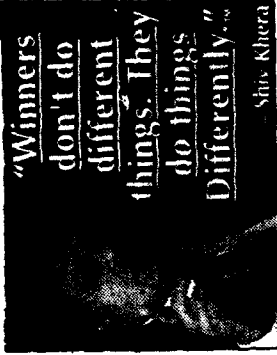 “Winners
don't do
different
things. They
do things
Differently.”™
Shiv Khera